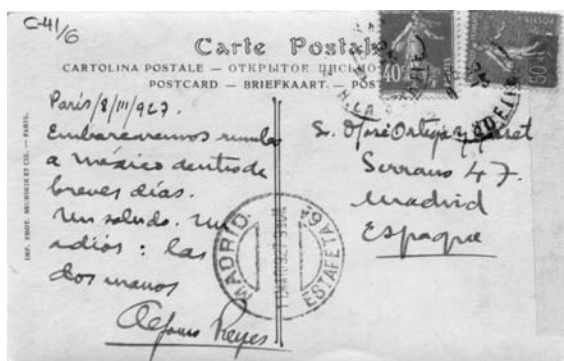 C-41/6
Carte Postale
CARTOLINA POSTALE — ОТКРЫТОЕ ПИСЬМО
POSTCARD — BRIEFKAART — POST
40
50
París/8/III/927.
Embarcaremos rumbo
a México dentro de
breves días.
Un saludo. Un
adiós: las
dos manos
Alfonso Reyes
S. José Ortega y Gasset
Serrano 47.
Madrid
España
MADRID.
ESTAFETA 6.